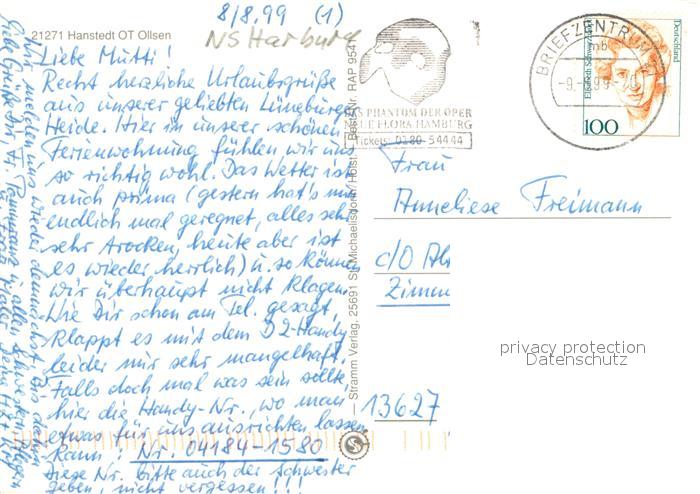 8/8.99 (1)
NS Harburg
21271 Hanstedt OT Ollsen
Liebe Mutti!
Recht herzliche Urlaubsgrüße
aus unserer geliebten Lüneburger
Heide. Hier in unserer schönen
Ferienwohnung fühlen wir uns
so richtig wohl. Das Wetter ist
auch prima (gestern hat's nur
endlich mal geregnet, alles sehr
sehr trocken, heute aber ist
es wieder herrlich) u. so können
wir überhaupt nicht klagen.
Wie Dir schon am Tel. gesagt,
klappt es mit dem D2-Handy
leider nur sehr mangelhaft.
Falls doch mal was sein sollte,
hier die Handy-Nr., wo man
etwas für uns ausrichten lassen
kann: Nr. 04184-1580
Diese Nr. bitte auch der Schwester
geben, nicht vergessen!!!
Wir melden uns wieder demnächst. Bis dahin
liebe Grüße an
allen Schwestern
Stramm Verlag, 25691 St. Michaelisdonn/Holst.
Bestell-Nr. RAP 954
DAS PHANTOM DER OPER
NEUE FLORA HAMBURG
Tickets: 0180-54444
BRIEFZENTRUM
mb
-9.
99
Deutschland
Elisabeth Schwarzhaupt
100
Frau
Anneliese Freimann
c/o
Zimm
13627
privacy protection
Datenschutz